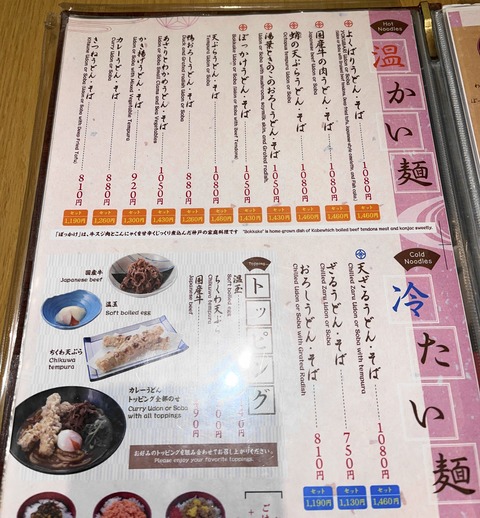 Hot Noodles
温かい麺
よくばりうどん・そば 1080円
セット 1,460円
蛸の天ぷらうどん・そば
Octopus tempura Udon or Soba
国産牛の肉うどん・そば
Japanese beef Udon or Soba
1080円
セット 1,460円
1050円
セット 1,430円
湯葉ときのこのおろしうどん・そば
Udon or Soba with mushroom, soymilk skin, and Grated radish.
1050円
セット 1,430円
ぼっかけうどん・そば
Bokkake Udon or Soba (Udon or Soba with Beef Tendons)
1050円
セット 1,430円
天ぷらうどん・そば
Tempura Udon or Soba
1080円
セット 1,460円
鴨おろしうどん・そば
Duck and Grated radish Udon or Soba
880円
セット 1,260円
あさりとわかめうどん・そば
1050円
セット 1,430円
かき揚げうどん・そば
Udon or Soba with Mixed Vegetable Tempura
920円
セット 1,300円
カレーうどん・そば
Curry Udon or Soba
880円
セット 1,260円
きつねうどん・そば
Udon or Soba with Deep Fried Tofu
810円
セット 1,190円
「ぼっかけ」は、牛スジ肉とこんにゃくを甘辛くじっくり煮込んだ神戸の家庭料理です
"Bokkake" is home-grown dish of Kobewhich boiled beef tendons meat and konjac sweetly.
Cold Noodles
冷たい麺
天ざるうどん・そば
Chilled Zaru Udon or Soba with tempura
1080円
セット 1,460円
ざるうどん・そば
Chilled Zaru Udon or Soba
750円
セット 1,130円
おろしうどん・そば
Chilled Udon or Soba with Grated Radish
810円
セット 1,190円
Topping
トッピング
温玉
Soft boiled egg
ちくわ天ぷら
Chikuwa tempura
国産牛
Japanese beef
国産牛
Japanese beef
温玉
Soft boiled egg
ちくわ天ぷら
Chikuwa tempura
カレーうどん
トッピング全部のせ
Curry Udon or Soba
with all toppings
お好みのトッピングを組み合わせてお召し上がりください。
Please enjoy your favorite toppings.